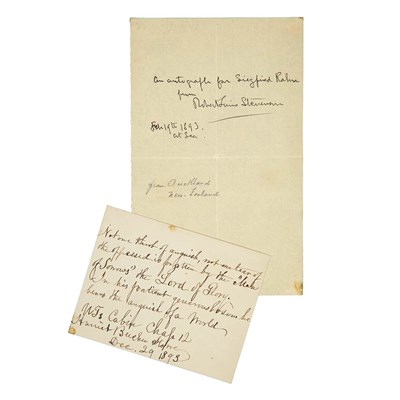 An autograph for Siegfried Rahn
from
Robert Louis Stevenson
Feb 19th 1893.
at Sea
from Auckland
New Zealand
Not one throb of anguish, not one tear of
the oppressed is forgotten by the "Man
of Sorrows" the Lord of Glory.
In his patient generous bosom he
bears the anguish of a World,
UTs Cabin Chap 12
Harriet Beecher Stowe
Dec 29 1893